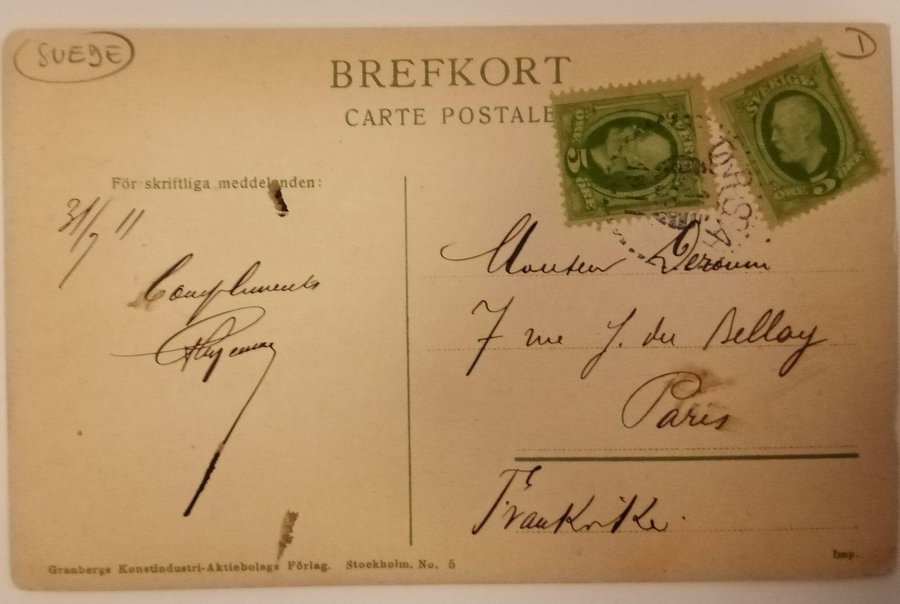 SUEDE
D
BREFKORT
CARTE POSTALE
5 ÖRE
SVERIGE
SVERIGE
ÖRE 5 ÖRE
För skriftliga meddelanden:
31/7 11
Compliments
Monsieur
7 rue J. du Bellay
Paris
Frankrike.
Granbergs Konstindustri-Aktiebolags Förlag. Stockholm. No. 5
Imp.